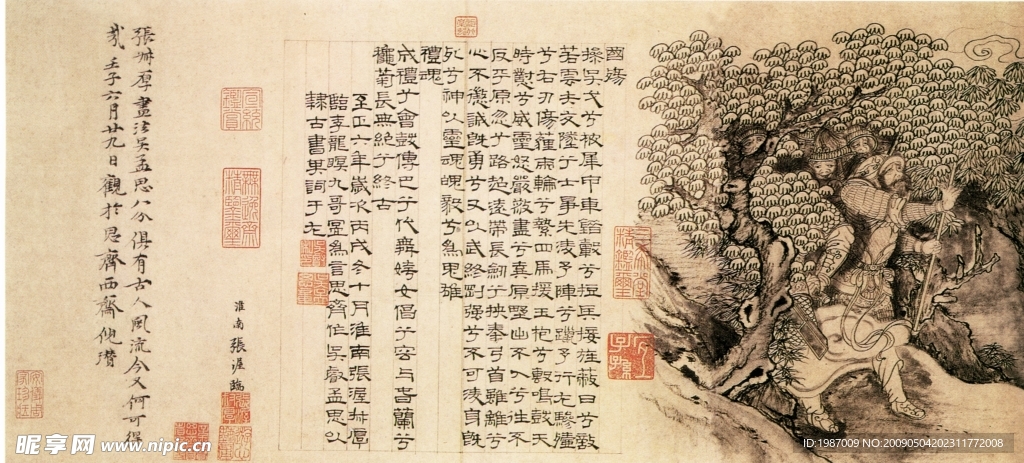 國殤
操吳戈兮被犀甲車錯轂兮短兵接旌蔽日兮敵
若雲矢交墜兮士爭先淩予陣兮躐予行左驂殪
兮右刃傷霾兩輪兮縶四馬援玉枹兮擊鳴鼓天
時懟兮威靈怒嚴殺盡兮棄原壄出不入兮往不
反平原忽兮路超遠帶長劍兮挾秦弓首雖離兮
心不懲誠既勇兮又以武終剛強兮不可淩身既
死兮神以靈魂魄毅兮為鬼雄
禮魂
成禮兮會鼓傳巴兮代舞姱女倡兮容與春蘭兮
秋菊長無絕兮終古
至正六年歲次丙戌冬十月淮南張渥叔厚
臨李龍眠九哥圖為言思齊作吳叡孟思以
隸古書其詞于左
淮南張渥臨
張叔厚畫法吳孟思八分俱有古人風流今又何可得
哉壬子六月廿九日觀於思齊西齋倪瓚
昵享网 www.nipic.cn
ID:1987009 NO:20090504202311772008